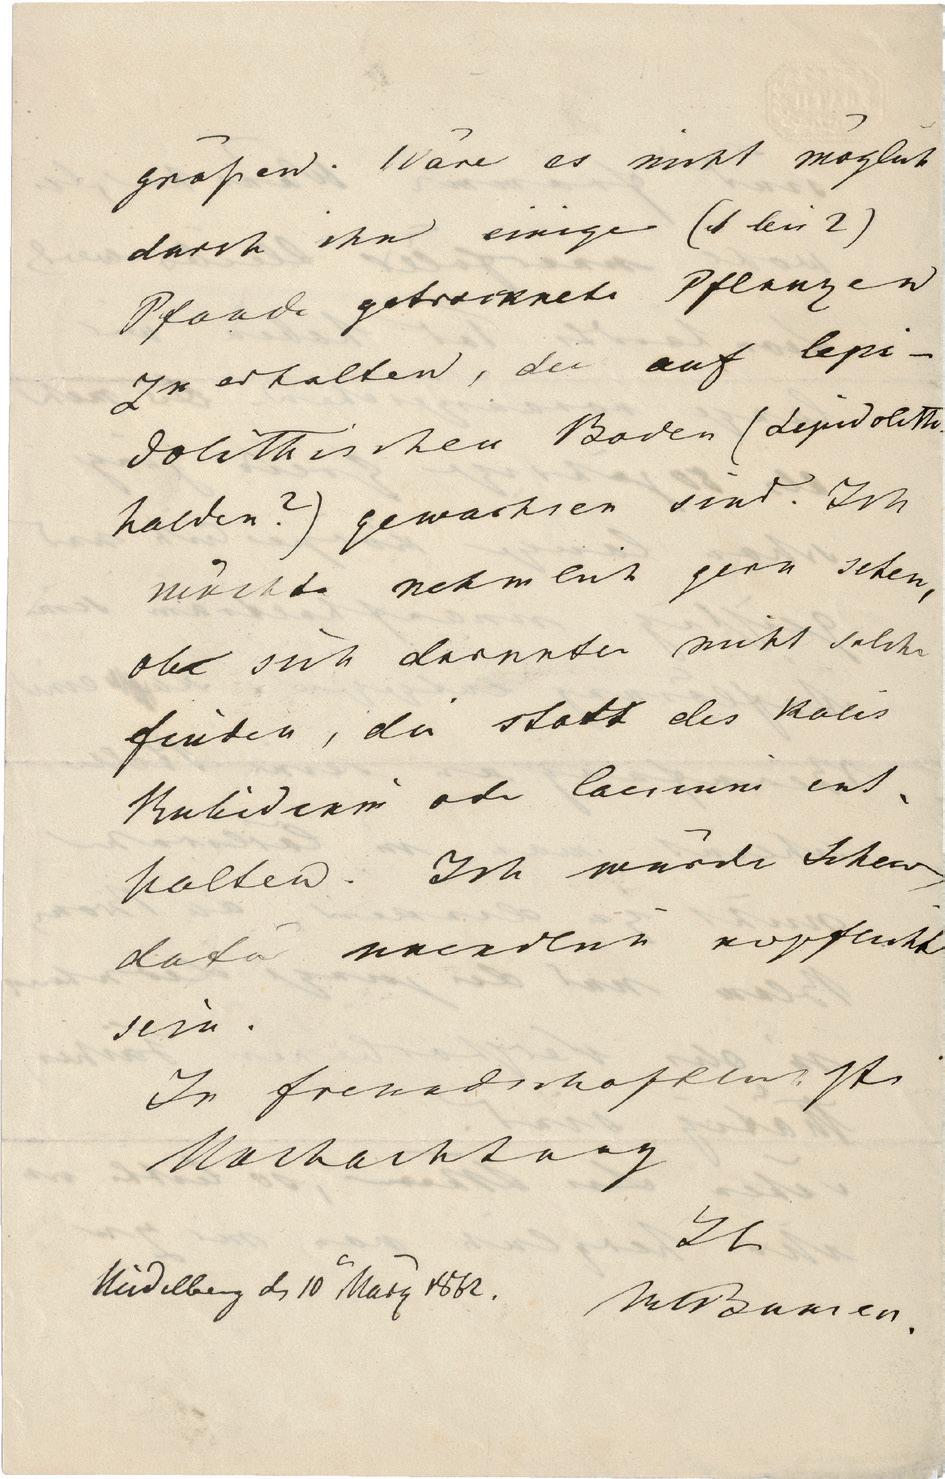 größen. Wäre es nicht möglich
durch ihn einige (1 bis 2)
Pfunde getrocknete Pflanzen
zu erhalten, die auf lepi-
dolithischen Boden (Lepidolith-
halden?) gewachsen sind. Ich
möchte nehmlich gern sehen,
ob sich darunter nicht solche
finden, die statt des Kalis
Rubidium oder Caesium ent-
halten. Ich würde Ihnen
dafür unendlich verpflichtet
sein.
In freundschaftlichster
Hochachtung
Ihr
RWBunsen.
Heidelberg d 10 März 1862.